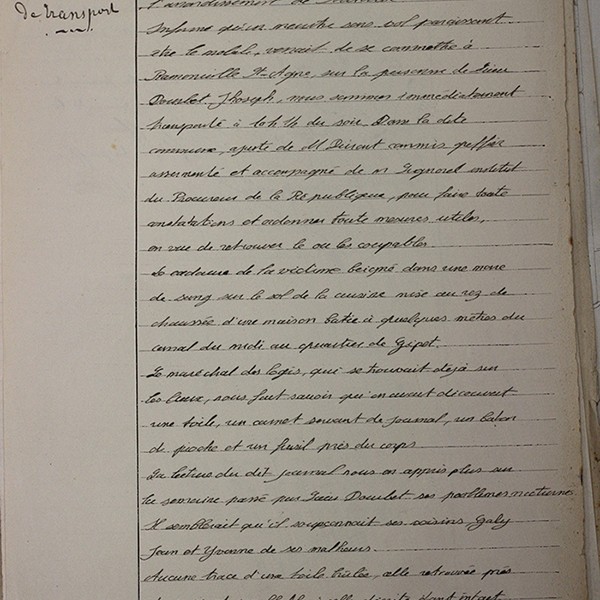 de transport
l'arrondissement de
Informé qu'un meurtre sans vol paraissant
être le mobile, venait de se commettre à
Ramonville St-Agne, sur la personne de Sieur
Doubet Joseph, nous sommes immédiatement
transporté à 10h ½ du soir Dans la dite
commune, assisté de M commis greffier
assermenté et accompagné de M substitut
du Procureur de la République, pour faire toute
constatations et ordonner toute mesures utiles,
en vue de retrouver le ou les coupables.
Le cadavre de la victime beigné dans une mare
de sang sur le sol de la cuisine mise au rez de
chaussée d'une maison batie à quelques mètres du
canal du midi au quartier de Gipot.
Le maréchal des logis, qui se trouvait déjà sur
les lieux, nous fait savoir qu'on avait découvert
une toile, un carnet servant de journal, un baton
de pioche et un fusil près du corps
La lecture du dit journal nous en appris plus sur
la semaine passé par Doubet ses problèmes nocturnes.
Il semblerait qu'il soupçonnait ses voisins, Galy
Jean et Yvonne de ses malheurs.
Aucune trace d'une toile brûlée, celle retrouvée près